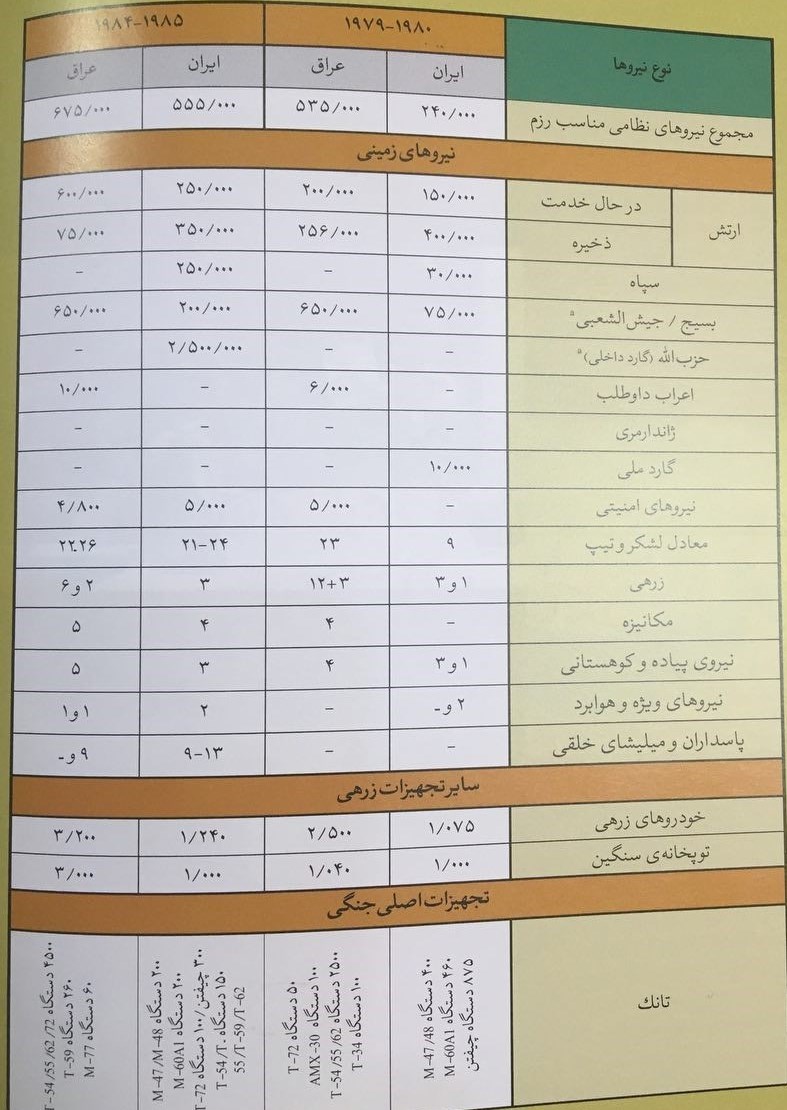 نوع نیروها ۱۹۷۹-۱۹۸۰ ۱۹۸۴-۱۹۸۵
ایران عراق ایران عراق
مجموع نیروهای نظامی مناسب رزم ۲۴۰/۰۰۰ ۵۳۵/۰۰۰ ۵۵۵/۰۰۰ ۶۷۵/۰۰۰
نیروهای زمینی
ارتش در حال خدمت ۱۵۰/۰۰۰ ۲۰۰/۰۰۰ ۲۵۰/۰۰۰ ۶۰۰/۰۰۰
ذخیره ۴۰۰/۰۰۰ ۲۵۶/۰۰۰ ۳۵۰/۰۰۰ ۷۵/۰۰۰
سپاه ۳۰/۰۰۰ – ۲۵۰/۰۰۰ –
بسیج / جیش‌الشعبی ۷۵/۰۰۰ ۶۵۰/۰۰۰ ۲۰۰/۰۰۰ ۶۵۰/۰۰۰
حزب‌الله (گارد داخلی) – – ۲/۵۰۰/۰۰۰ –
اعراب داوطلب – ۶/۰۰۰ – ۱۰/۰۰۰
ژاندارمری – – – –
گارد ملی ۱۰/۰۰۰ – – –
نیروهای امنیتی – ۵/۰۰۰ ۵/۰۰۰ ۴/۸۰۰
معادل لشکر و تیپ ۹ ۲۳ ۲۱-۲۴ ۲۲-۲۶
زرهی ۱ و ۳ ۱۲+۳ ۳ ۲ و ۶
مکانیزه – ۴ ۴ ۵
نیروی پیاده و کوهستانی ۱ و ۳ ۴ ۳ ۵
نیروهای ویژه و هوابرد ۲ و - – ۲ ۱ و ۱
پاسداران و میلیشای خلقی – – ۹-۱۳ ۹ و -
سایر تجهیزات زرهی
خودروهای زرهی ۱/۰۷۵ ۲/۵۰۰ ۱/۲۴۰ ۳/۲۰۰
توپخانه‌ی سنگین ۱/۰۰۰ ۱/۰۴۰ ۱/۰۰۰ ۳/۰۰۰
تجهیزات اصلی جنگی
تانک
۴۰۰ دستگاه M-47/48
۴۶۰ دستگاه M-60A1
۸۷۵ دستگاه چیفتن
۵۰ دستگاه T-72
۱۰۰ دستگاه AMX-30
۲۵۰۰ دستگاه T-54/55/62
۱۰۰ دستگاه T-34
۲۰۰ دستگاه M-47/M-48
۲۰۰ دستگاه M-60A1
۳۰۰ چیفتن/۱۰۰ دستگاه T-72
۱۵۰ دستگاه T-54/T.
55/T-59/T-62
۴۵۰۰ دستگاه T-54/55/62/72
۲۶۰ دستگاه T-59
۶۰ دستگاه M-77